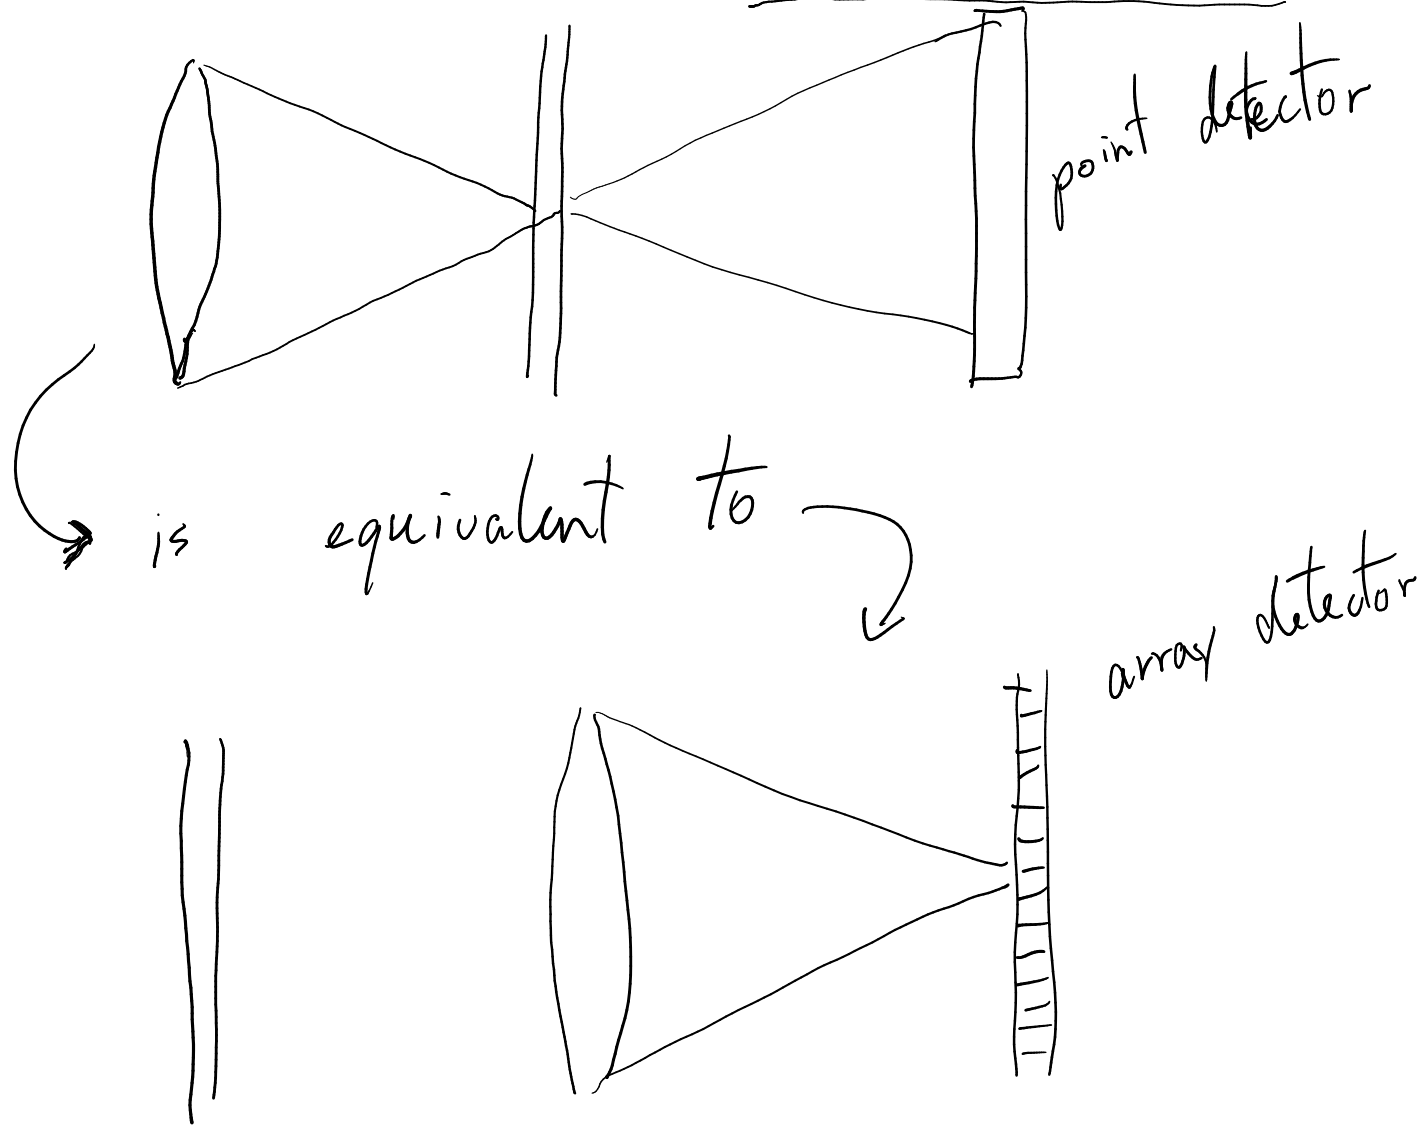 point detector
is equivalent to
array detector